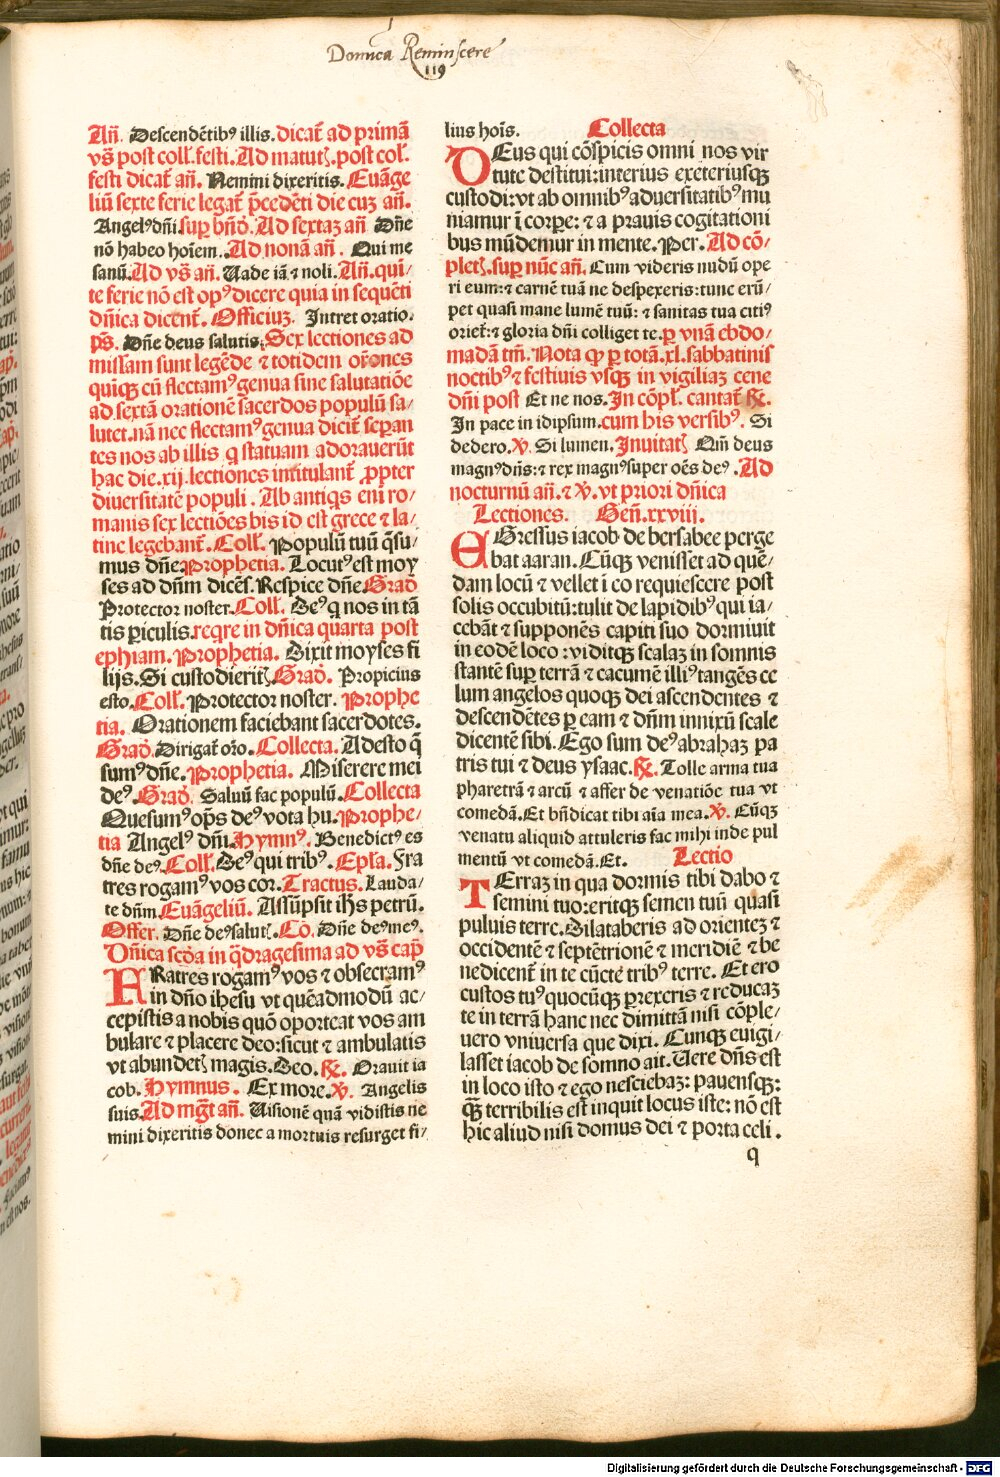 Domica Reminscere
119
Añ. Descendētibꝰ illis. dicat̄ ad primā
vs̄ post coll. festi. Ad matutꝭ. post col.
festi dicat̄ añ. Nemini dixeritis. Euāge
liū sexte ferie legat̄ p̄cedēti die cuꝫ añ.
Angelꝰ dñi. sup bñd̄. Ad sextaꝫ añ Dñe
nō habeo hoīem. Ad nonā añ. Qui me
sanū. Ad vs̄ añ. Uade iā ⁊ noli. Añ. qui/
te ferie nō est opꝰ dicere quia in sequēti
dñica dicent̄. Officiuꝫ. Intret oratio.
ps̄. Dñe deus salutis. Sex lectiones ad
missam sunt legēde ⁊ totidem or̄ones
quīqꝫ cū flectamꝰ genua sine salutatiōe
ad sextā orationē sacerdos populū sa/
lutet. nā nec flectamꝰ genua dicit̄ separan
tes nos ab illis q̄ statuam adorauerūt
hac die. xij. lectiones intitulant̄ ꝓpter
diuersitatē populi. Ab antiqs eni ro/
manis sex lectiōes bis id est grece ⁊ la/
tine legebant̄. Coll. Populū tuū q̄su/
mus dñe. Prophetia. Locutꝰ est moy
ses ad dñm dicēs. Respice dñe. Grad̄
Protector noster. Coll. Deꝰ q̄ nos in tā
tis ꝑiculis. reqre in dñica quarta post
ephiam. Prophetia. Dixit moyses fi
lijs. Si custodieritꝭ. Grad̄. Propicius
esto. Coll. Protector noster. Prophe
tia. Orationem faciebant sacerdotes.
Grad̄. Dirigat̄ or̄o. Collecta. Adesto q̄
sumꝰ dñe. Prophetia. Miserere mei
deꝰ. Grad̄. Saluū fac populū. Collecta
Quesumꝰ op̄s deꝰ vota hu. Prophe/
tia Angelꝰ dñi. Hymnꝰ. Benedictꝰ es
dñe deꝰ. Coll. Deꝰ qui tribꝰ. Epl̄a. Fra
tres rogamꝰ vos cor. Tractus. Lauda/
te dñm Euāgeliū. Assūpsit ih̄s petrū.
Offer. Dñe deꝰ salutꝭ. Co. Dñe deꝰ meꝰ.
Dñica sc̄da in q̄dragesima ad vs̄ cap̄
FRatres rogamꝰ vos ⁊ obsecramꝰ
in dño ihesu vt quēadmodū ac/
cepistis a nobis quō oporteat vos am
bulare ⁊ placere deo: sicut ⁊ ambulatis
vt abundetꝭ magis. Deo. ℟. Orauit ia
cob. Hymnus. Ex more. ℣. Angelis
suis. Ad mḡt añ. Uisionē quā vidistis ne
mini dixeritis donec a mortuis resurget fi/
lius hoīs. Collecta
DEus qui cōspicis omni nos vir
tute destitui: interius exeteriusqꝫ
custodi: vt ab omnibꝰ aduersitatibꝰ mu
niamur ī corpe: ⁊ a prauis cogitationi
bus mūdemur in mente. Per. Ad cō/
pletꝭ. sup nūc añ. Cum videris nudū ope
ri eum: ⁊ carnē tuā ne despexeris: tunc erū/
pet quasi mane lumē tuū: ⁊ sanitas tua citiꝰ
oriet̄: ⁊ gloria dñi colliget te. ꝑ vnā ebdo/
madā tm̄. Nota ꝙ ꝑ totā. xl. sabbatinis
noctibꝰ ⁊ festiuis vsqꝫ in vigiliaꝫ cene
dñi post Et ne nos. In cōpl̄. cantat̄ ℟.
In pace in idipsum. cum his versibꝰ. Si
dedero. ℣. Si lumen. Inuitatꝭ Qm̄ deus
magnꝰ dñs: ⁊ rex magnꝰ super oēs deꝰ. Ad
nocturnū añ. ⁊ ℣. vt priori dñica
Lectiones. Geñ. xxviii.
EGressus iacob de bersabee perge
bat aaran. Cūqꝫ venisset ad quē/
dam locū ⁊ vellet ī eo requiescere post
solis occubitū: tulit de lapidibꝰ qui ia/
cebāt ⁊ supponēs capiti suo dormiuit
in eodē loco: viditqꝫ scalaꝫ in somnis
stantē sup terrā ⁊ cacumē illiꝰ tangēs ce
lum angelos quoqꝫ dei ascendentes ⁊
descendētes ꝑ eam ⁊ dñm innixū scale
dicentē sibi. Ego sum deꝰ abrahaꝫ pa
tris tui ⁊ deus ysaac. ℟. Tolle arma tua
pharetrā ⁊ arcū ⁊ affer de venatiōe tua vt
comedā. Et bñdicat tibi aīa mea. ℣. Cūqꝫ
venatu aliquid attuleris fac mihi inde pul
mentū vt comedā. Et. Lectio
TErraꝫ in qua dormis tibi dabo ⁊
semini tuo: eritqꝫ semen tuū quasi
puluis terre. Dilataberis ad orienteꝫ ⁊
occidentē ⁊ septētrionē ⁊ meridiē ⁊ be
nedicent̄ in te cūcte tribꝰ terre. Et ero
custos tuꝰ quocūqꝫ ꝑrexeris ⁊ reducaꝫ
te in terrā hanc nec dimittā nisi cōple/
uero vniuersa que dixi. Cunqꝫ euigi/
lasset iacob de somno ait. Uere dñs est
in loco isto ⁊ ego nesciebaꝫ: pauensqꝫ:
qꝫ̄ terribilis est inquit locus iste: nō est
hic aliud nisi domus dei ⁊ porta celi.
q
Digitalisierung gefördert durch die Deutsche Forschungsgemeinschaft - DFG